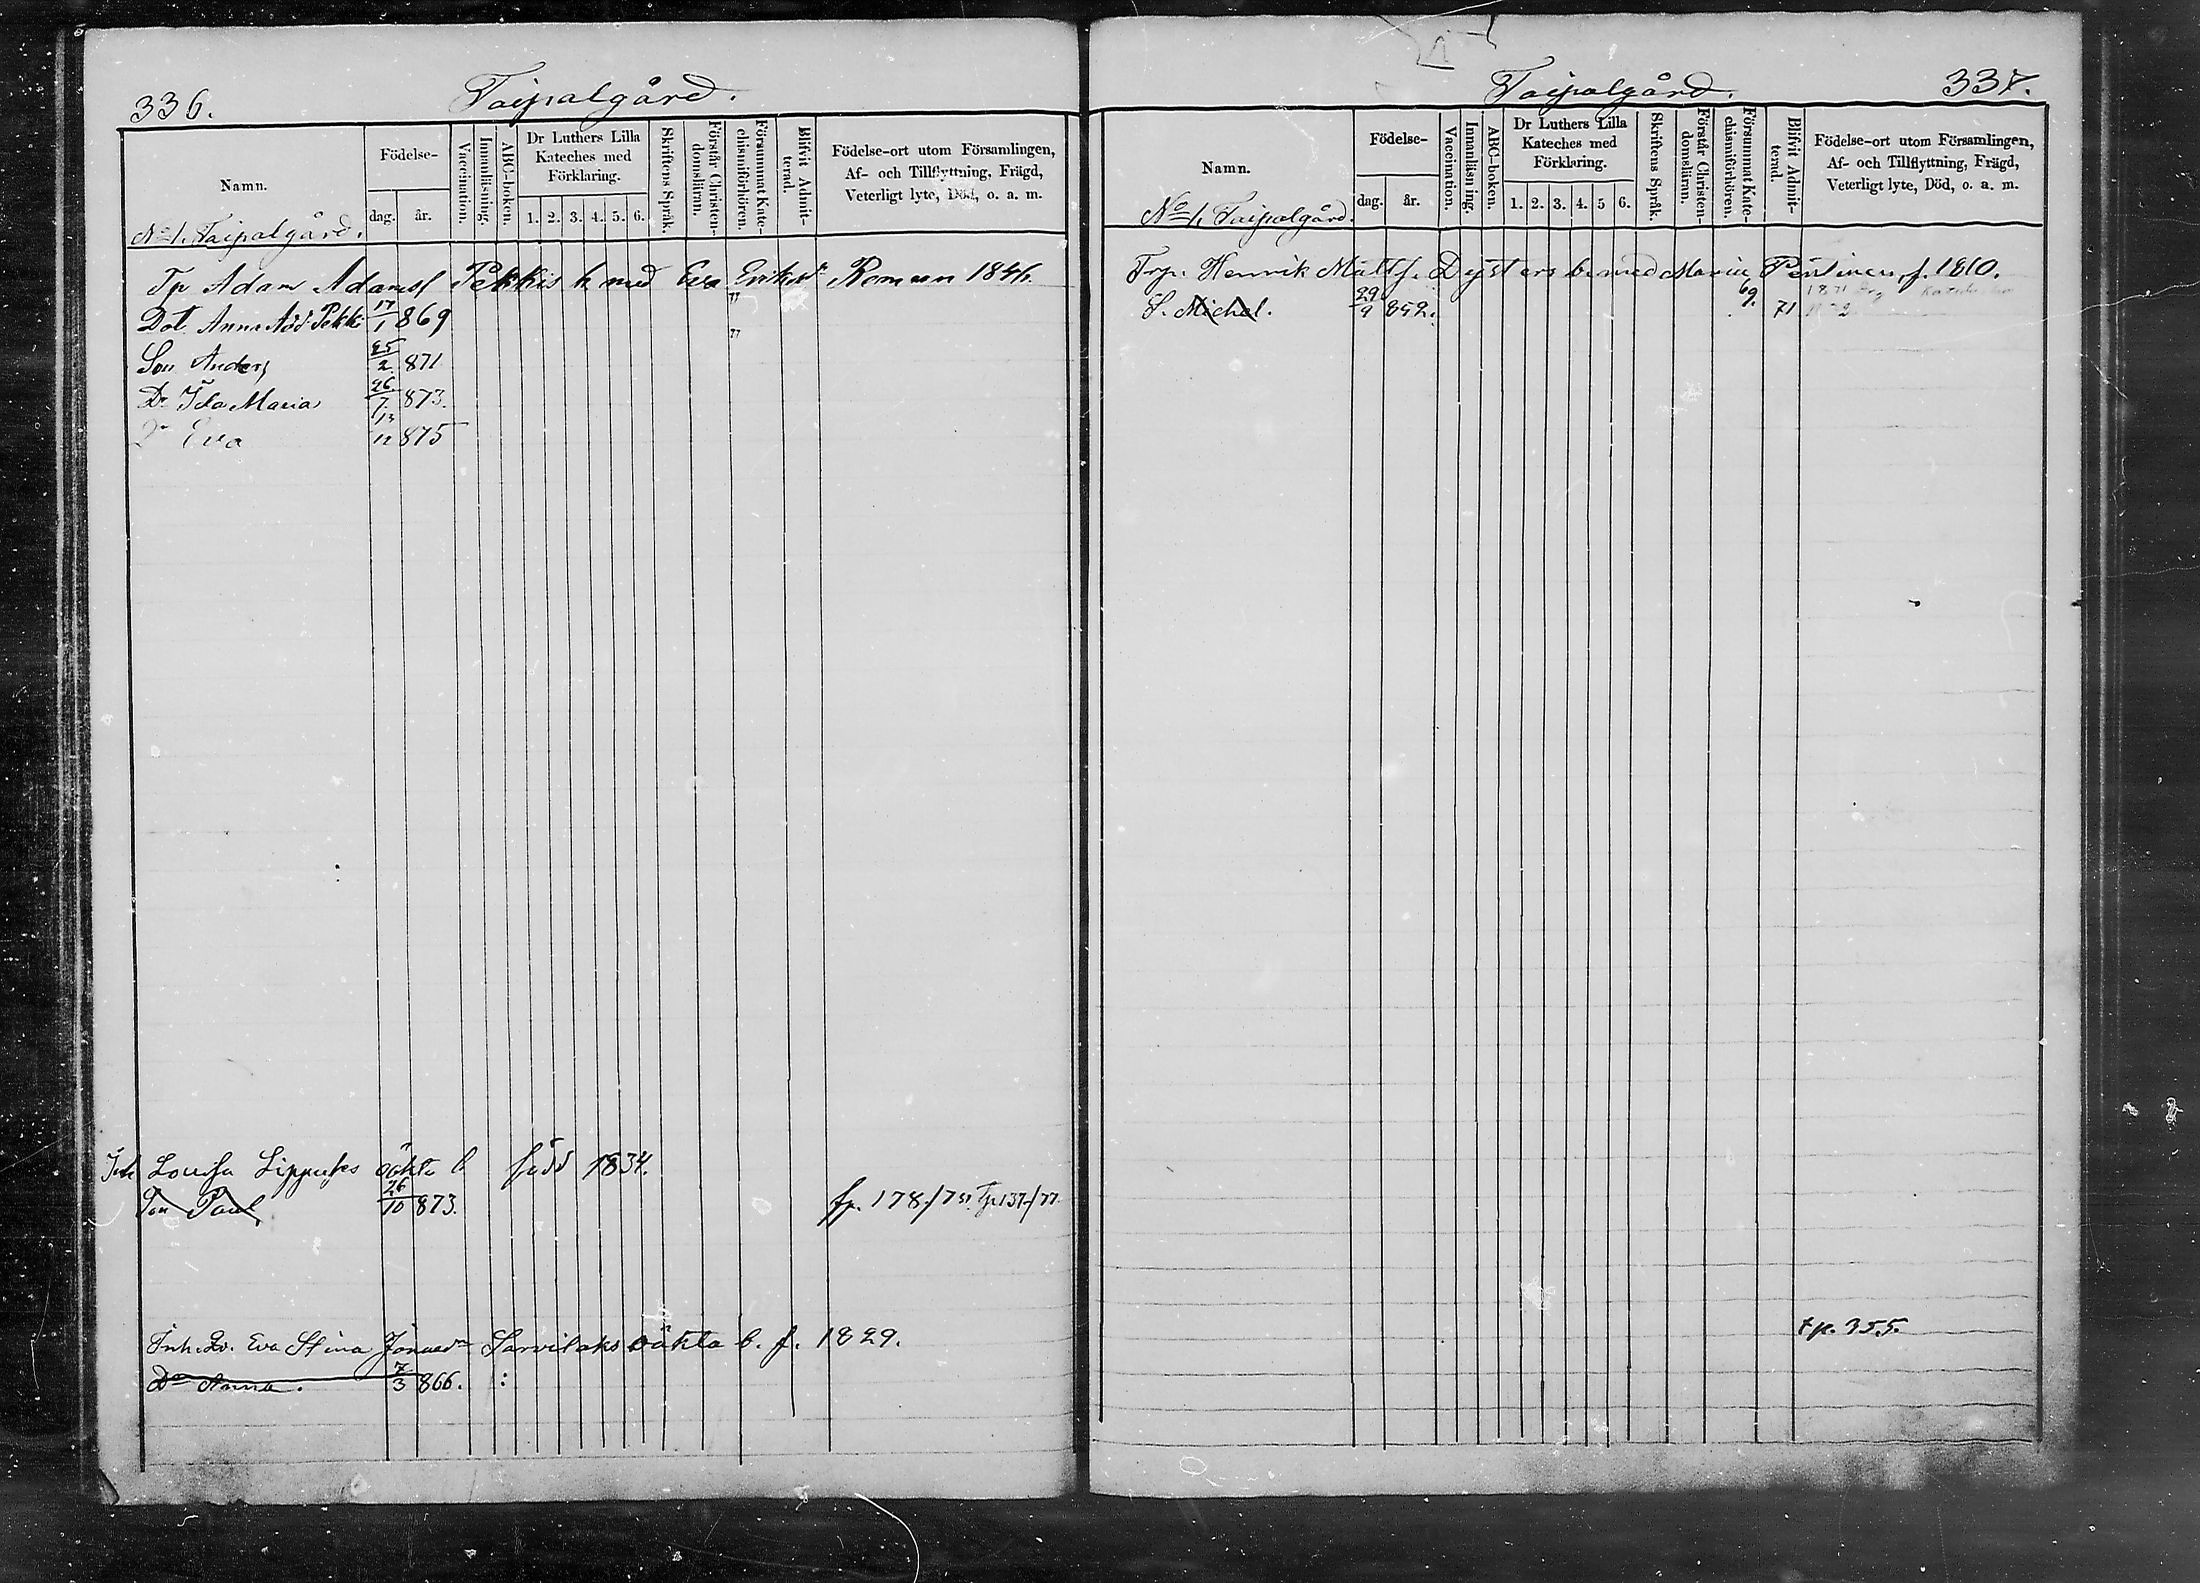 336.
Taipalgård.
Namn.
Födelse-
dag. år.
Vaccination.
Innanläsning.
ABC-boken.
Dr Luthers Lilla
Kateches med
Förklaring.
1. 2. 3. 4. 5. 6.
Skriftens Språk.
Förstår Christen-
domsläran.
Försummat Kate-
chismiförhören.
Blifvit Admit-
terad.
Födelse-ort utom Församlingen,
Af- och Tillflyttning, Frägd,
Veterligt lyte, Död, o. a. m.
No 1. Taipalgård.
Tp Adam Adamsf Pekkis b. med Eva Eriksdr Roman 1846.
Dot. Anna Add. Pekki 17/1 869
Son Anders 25/2 871
Dr Ida Maria 26/7 873.
Dr Eva 13/12 875
Inh Lovisa oäkta b född 1834.
Son Paul 26/10 873. fp. 178/75. Tp 137/77
Inh. Qv. Eva Stina Jönasdr Sarvilaks oäkta b. f. 1829.
Dr Anna. 7/3 866. :
337.
Taipalgård.
Namn.
Födelse-
dag. år.
Vaccination.
Innanläsning.
ABC-boken.
Dr Luthers Lilla
Kateches med
Förklaring.
1. 2. 3. 4. 5 6.
Skriftens Språk.
Förstår Christen-
domsläran.
Försummat Kate-
chismiförhören.
Blifvit Admit-
terad.
Födelse-ort utom Församlingen,
Af- och Tillflyttning, Frägd,
Veterligt lyte, Död, o. a. m.
No 1. Taipalgård.
Trp. Henrik Mattsf. Dysters b. med Maria Pentinen, f. 1810.
S. Michel. 29/9 852. 69. 71 1871
tp. 355.